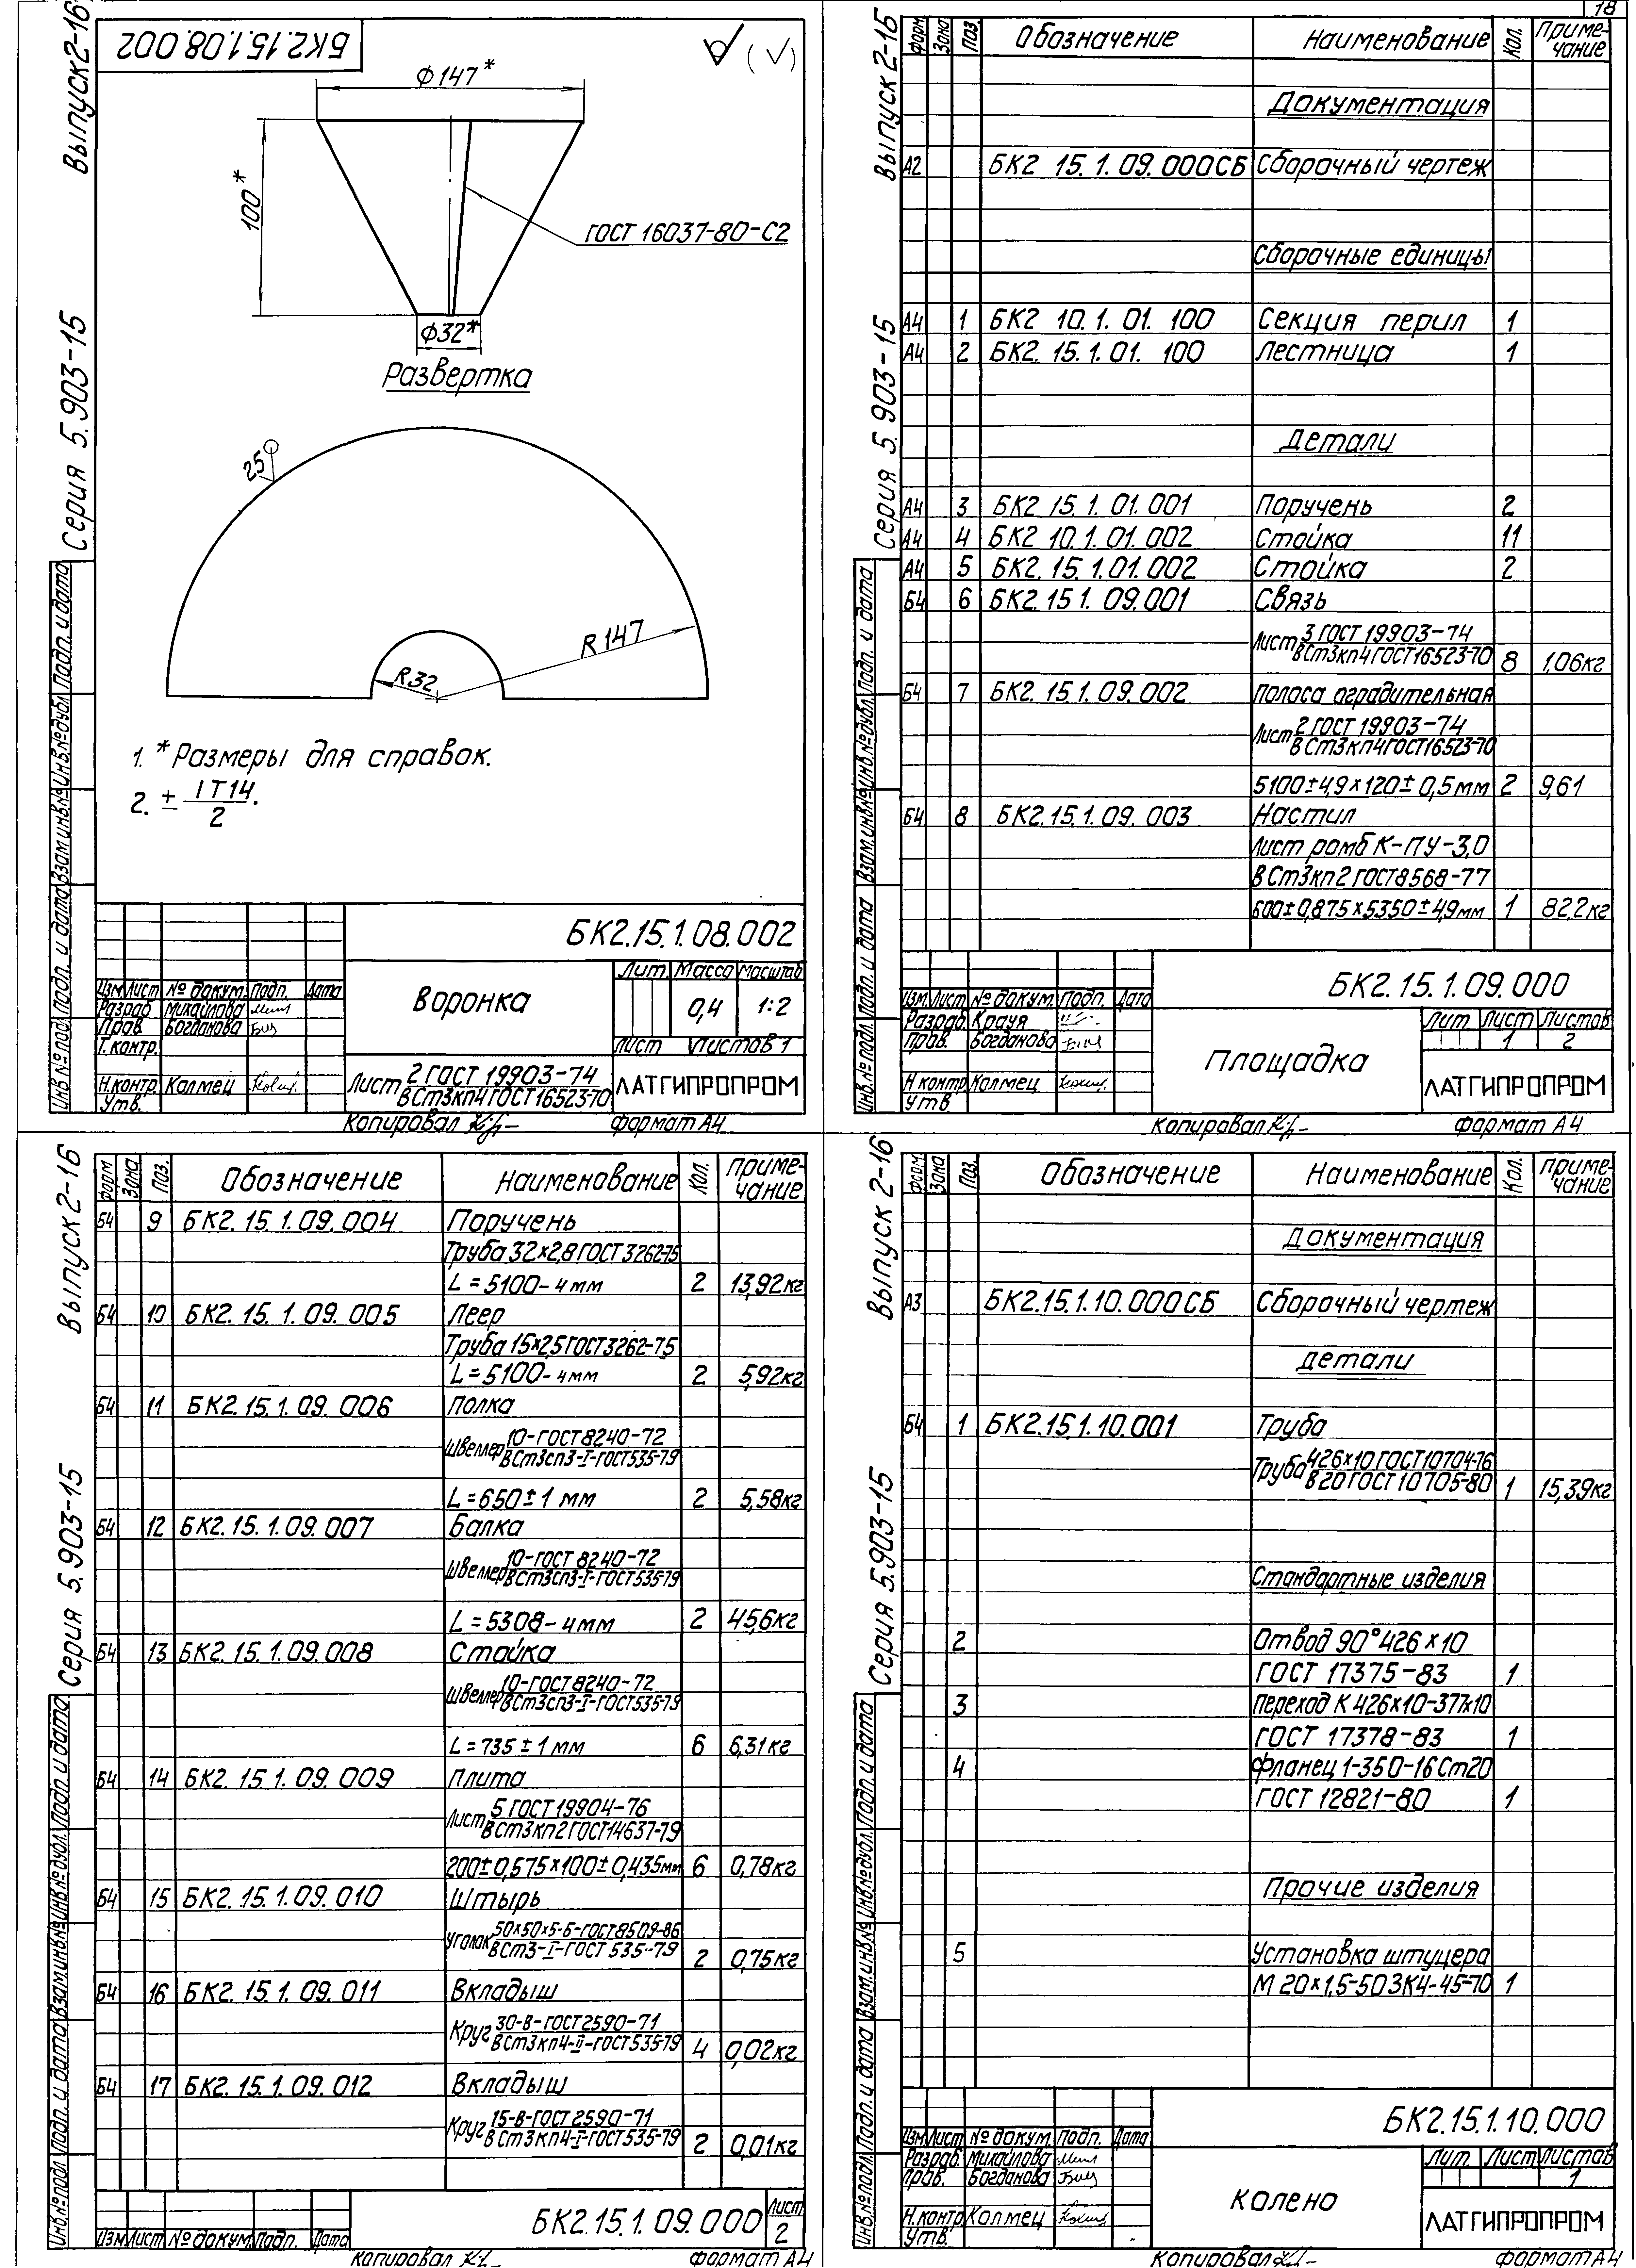 18
Выпуск 2-16
Серия 5.903-15
БК2.15.1.08.002
√ (√)
Ф147*
100*
ГОСТ 16037-80-С2
Ф32*
Развертка
25
R147
R32
1. *Размеры для справок.
2. ± IT14/2.
Инв.№подл. Подп. и дата Взам.инв.№ Инв.№дубл. Подп. и дата
БК2.15.1.08.002
Изм Лист № докум. Подп. Дата
Разраб. Михайлова
Пров. Богданова
Т.контр.
Н.контр. Колмец
Утв.
Воронка
Лит. Масса Масштаб
0,4 1:2
Лист Листов 1
Лист 2 ГОСТ 19903-74 / ВСт3кп4 ГОСТ 16523-70
ЛАТГИПРОПРОМ
Копировал
формат А4
Выпуск 2-16
Серия 5.903-15
Форм. Зона Поз. Обозначение Наименование Кол. Приме-чание
Документация
А2 БК2 15.1.09.000СБ Сборочный чертеж
Сборочные единицы
А4 1 БК2 10.1.01.100 Секция перил 1
А4 2 БК2.15.1.01.100 Лестница 1
Детали
А4 3 БК2 15.1.01.001 Поручень 2
А4 4 БК2 10.1.01.002 Стойка 11
А4 5 БК2.15.1.01.002 Стойка 2
Б4 6 БК2.15 1.09.001 Связь
Лист 3 ГОСТ 19903-74 / ВСт3кп4 ГОСТ 16523-70 8 1,06кг
Б4 7 БК2.15.1.09.002 Полоса оградительная
Лист 2 ГОСТ 19903-74 / ВСт3кп4 ГОСТ 16523-70
5100±4,9×120±0,5мм 2 9,61
Б4 8 БК2.15.1.09.003 Настил
Лист ромб К-ПУ-3,0
ВСт3кп2 ГОСТ 8568-77
600±0,875×5350±4,9мм 1 82,2кг
Инв.№подл. Подп. и дата Взам.инв.№ Инв.№дубл. Подп. и дата
БК2.15.1.09.000
Изм. Лист № докум. Подп. Дата
Разраб. Крауя
Пров. Богданова
Н контр Колмец
Утв.
Площадка
Лит. Лист Листов
1 2
ЛАТГИПРОПРОМ
Копировал
формат А4
Выпуск 2-16
Серия 5.903-15
Форм Зона Поз. Обозначение Наименование Кол. Приме-чание
Б4 9 БК2.15.1.09.004 Поручень
Труба 32×2,8 ГОСТ 3262-75
L=5100-4мм 2 13,92кг
Б4 10 БК2.15.1.09.005 Леер
Труба 15×2,5 ГОСТ 3262-75
L=5100-4мм 2 5,92кг
Б4 11 БК2.15.1.09.006 Полка
Швеллер 10-ГОСТ 8240-72 / ВСт3сп3-I-ГОСТ 535-79
L=650±1 мм 2 5,58кг
Б4 12 БК2.15.1.09.007 Балка
Швеллер 10-ГОСТ 8240-72 / ВСт3сп3-I-ГОСТ 535-79
L=5308-4мм 2 45,6кг
Б4 13 БК2.15.1.09.008 Стойка
Швеллер 10-ГОСТ 8240-72 / ВСт3сп3-I-ГОСТ 535-79
L=735±1мм 6 6,31кг
Б4 14 БК2.15.1.09.009 Плита
Лист 5 ГОСТ 19904-76 / ВСт3кп2 ГОСТ 14637-79
200±0,575×100±0,435мм 6 0,78кг
Б4 15 БК2.15.1.09.010 Штырь
Уголок 50×50×5-Б-ГОСТ 8509-86 / ВСт3-I-ГОСТ 535-79 2 0,75кг
Б4 16 БК2.15.1.09.011 Вкладыш
Круг 30-В-ГОСТ 2590-71 / ВСт3кп4-II-ГОСТ 535-79 4 0,02кг
Б4 17 БК2.15.1.09.012 Вкладыш
Круг 15-В-ГОСТ 2590-71 / ВСт3кп4-I-ГОСТ 535-79 2 0,01кг
Инв.№подл. Подп. и дата Взам.инв.№ Инв.№дубл. Подп. и дата
Изм Лист № докум. Подп. Дата
БК2.15.1.09.000
Лист
2
Копировал
формат А4
Выпуск 2-16
Серия 5.903-15
Форм. Зона Поз. Обозначение Наименование Кол. Приме-чание
Документация
А3 БК2.15.1.10.000СБ Сборочный чертеж
Детали
Б4 1 БК2.15.1.10.001 Труба
Труба 426×10 ГОСТ 10704-76 / В20 ГОСТ 10705-80 1 15,39кг
Стандартные изделия
2 Отвод 90° 426×10
ГОСТ 17375-83 1
3 Переход К 426×10-377×10
ГОСТ 17378-83 1
4 Фланец 1-350-16 Ст20
ГОСТ 12821-80 1
Прочие изделия
5 Установка штуцера
М20×1,5-50 ЗК4-45-70 1
Инв.№подл. Подп. и дата Взам.инв.№ Инв.№дубл. Подп. и дата
БК2.15.1.10.000
Изм Лист № докум. Подп. Дата
Разраб. Михайлова
Пров. Богданова
Н.контр Колмец
Утв.
Колено
Лит. Лист Листов
1
ЛАТГИПРОПРОМ
Копировал
формат А4